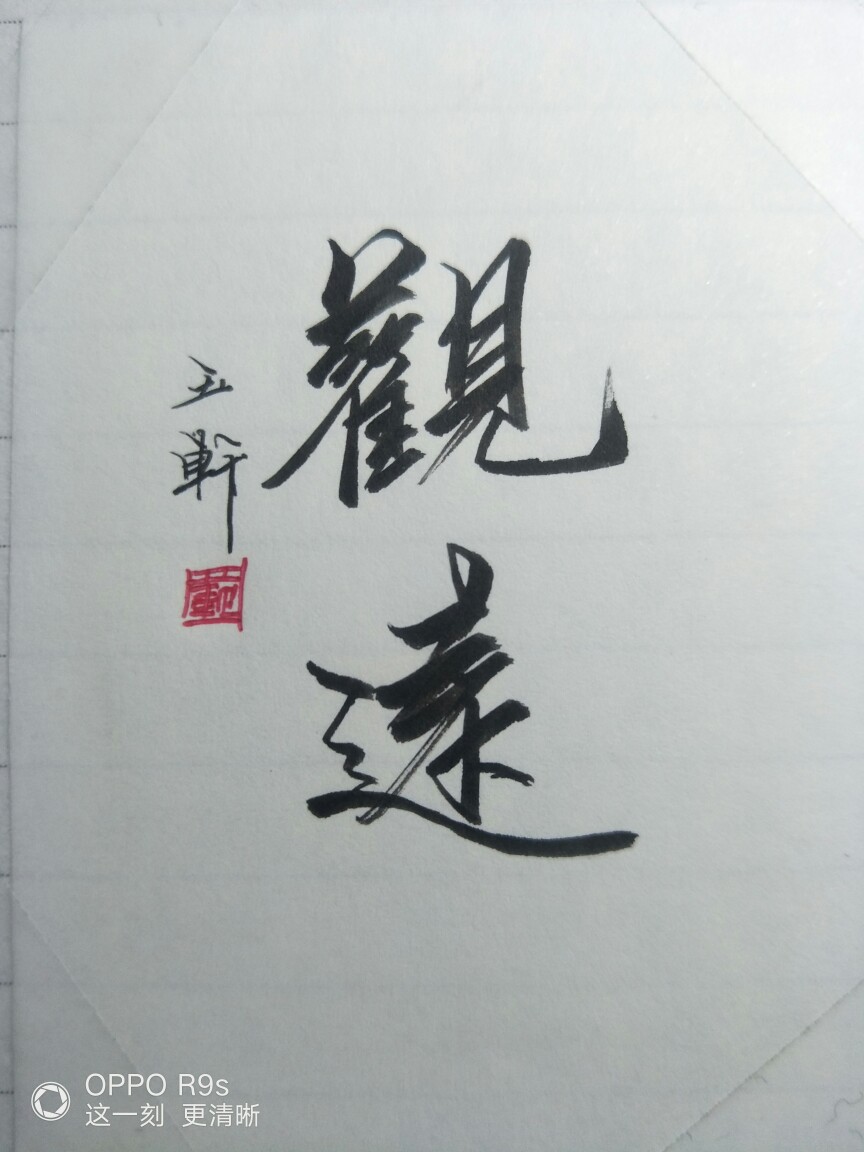 觀遠
玉軒
OPPO R9s
这一刻 更清晰